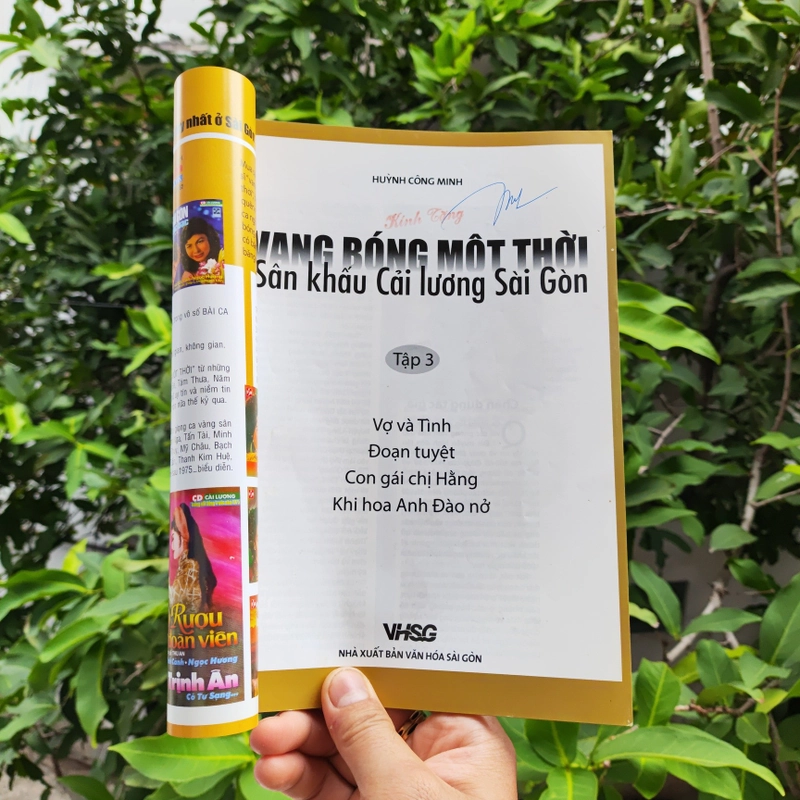 nhất ở Sài Gòn
vô số BÀI CA
gian, không gian.
THỜI" từ những
Tám Thưa. Năm
tín và niềm tin
nửa thế kỷ qua.
ca vàng sân
Tấn Tài, Minh
Mỹ Châu, Bạch
Thanh Kim Huệ,
1975...biểu diễn.
CD CẢI LƯƠNG
Rượu
viên
Cảnh - Ngọc Hương
Trịnh Ân
Cô Tư Sạng...
HUỲNH CÔNG MINH
Kính Tặng
VANG BÓNG MỘT THỜI
Sân khấu Cải lương Sài Gòn
Tập 3
Vợ và Tình
Đoạn tuyệt
Con gái chị Hằng
Khi hoa Anh Đào nở
VHSG
NHÀ XUẤT BẢN VĂN HÓA SÀI GÒN